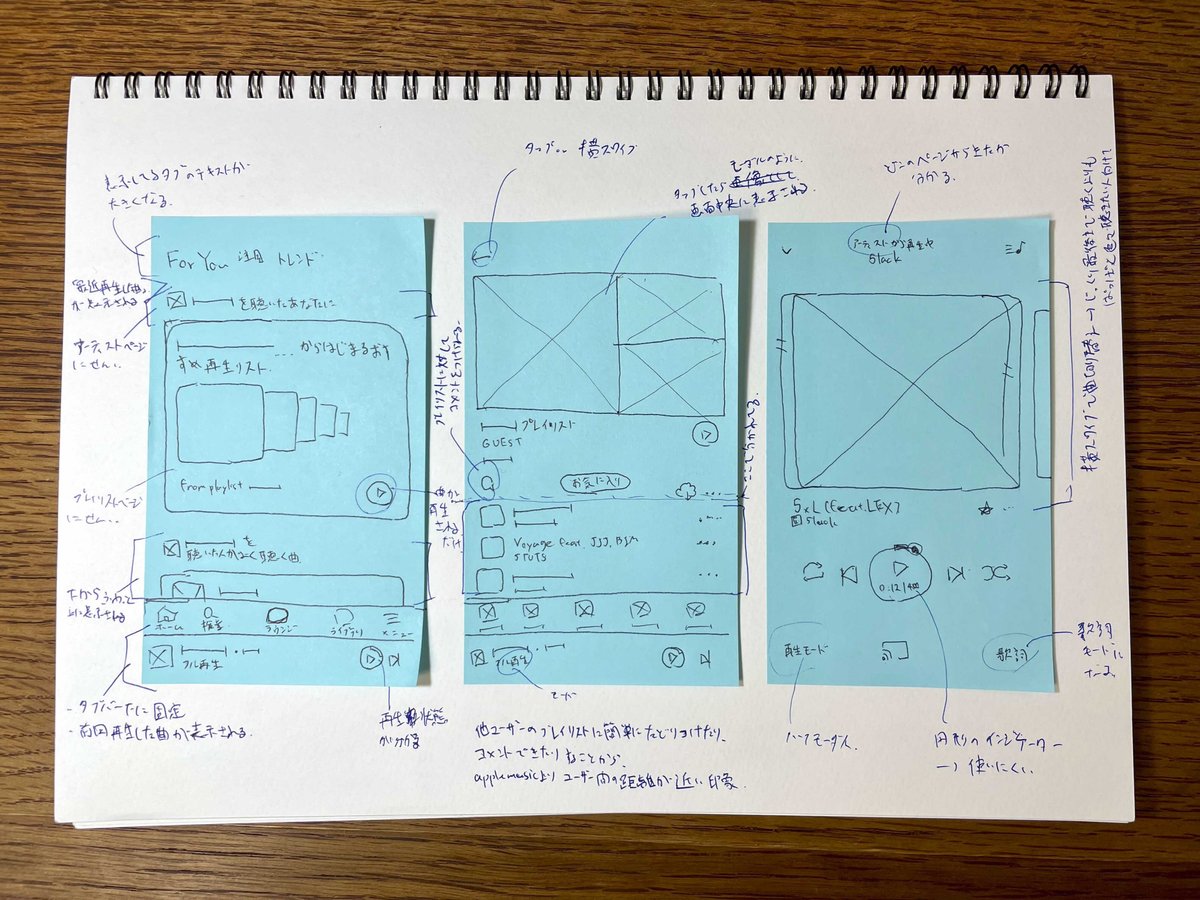 表示してるタブのテキストが
大きくなる。
For You 注目 トレンド
最近再生した曲
が表示される
を聴いたあなたに
アーティストページ
にせんい
…からはじまるおす
すめ再生リスト.
from playlist
プレイリストページ
にせんい
曲が
再生
される
だけ
を
聴いた人がよく聴く曲
ホーム 検索 ラウンジ ライブラリ メニュー
フル再生
・タブバー下に固定
・前回再生した曲が表示される。
再生状態
が分かる
タップor 横スワイプ
モーダルのように
タップしたら
画面中央に表示される。
プレイリストに対して
コメントできる
プレイリスト
GUEST
お気に入り
Voyage feat. JJJ, BIM
STUTS
フル再生
他ユーザーのプレイリストに簡単にたどりつけたり、
コメントできたりすることから、
apple musicより ユーザー間の距離が近い印象.
どこのページから来たか
分かる.
アーティストから再生中
5lack
5xL (feat.LEX)
5lack
0:12/
再生モード
歌詞
歌詞
モードに
なる.
ハーフモーダル.
円形のインジケーター
→ 使いにくい.
横スワイプで曲切り替え